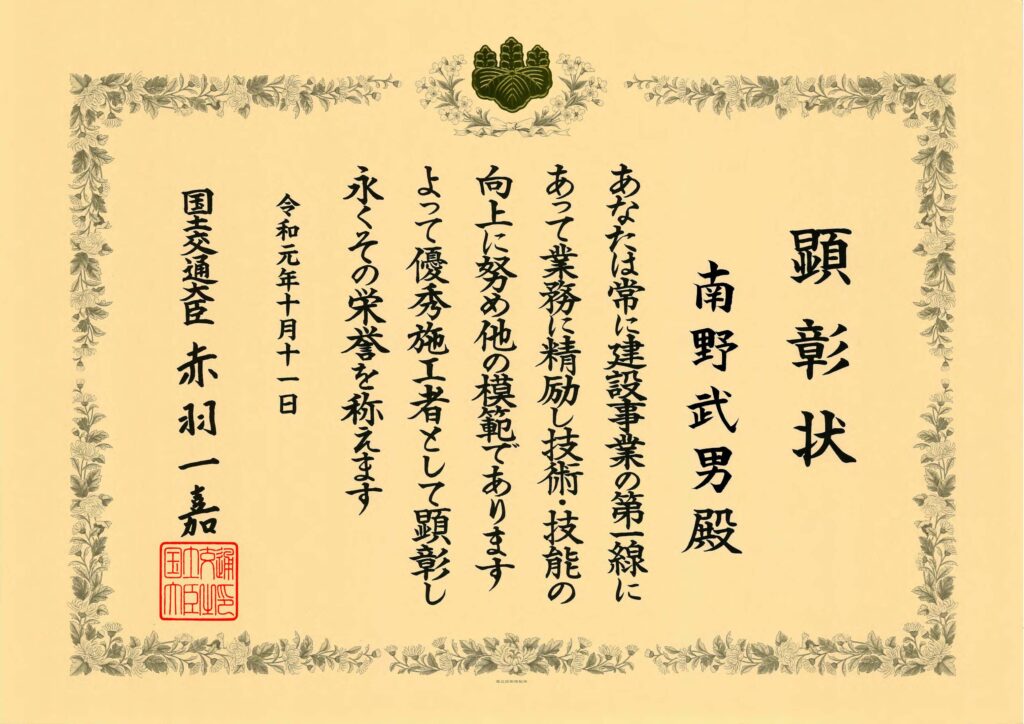 顕彰状
南野武男殿
あなたは常に建設事業の第一線に
あって業務に精励し技術・技能の
向上に努め他の模範であります
よって優秀施工者として顕彰し
永くその栄誉を称えます
令和元年十月十一日
国土交通大臣 赤羽一嘉
国土交通
大臣之印